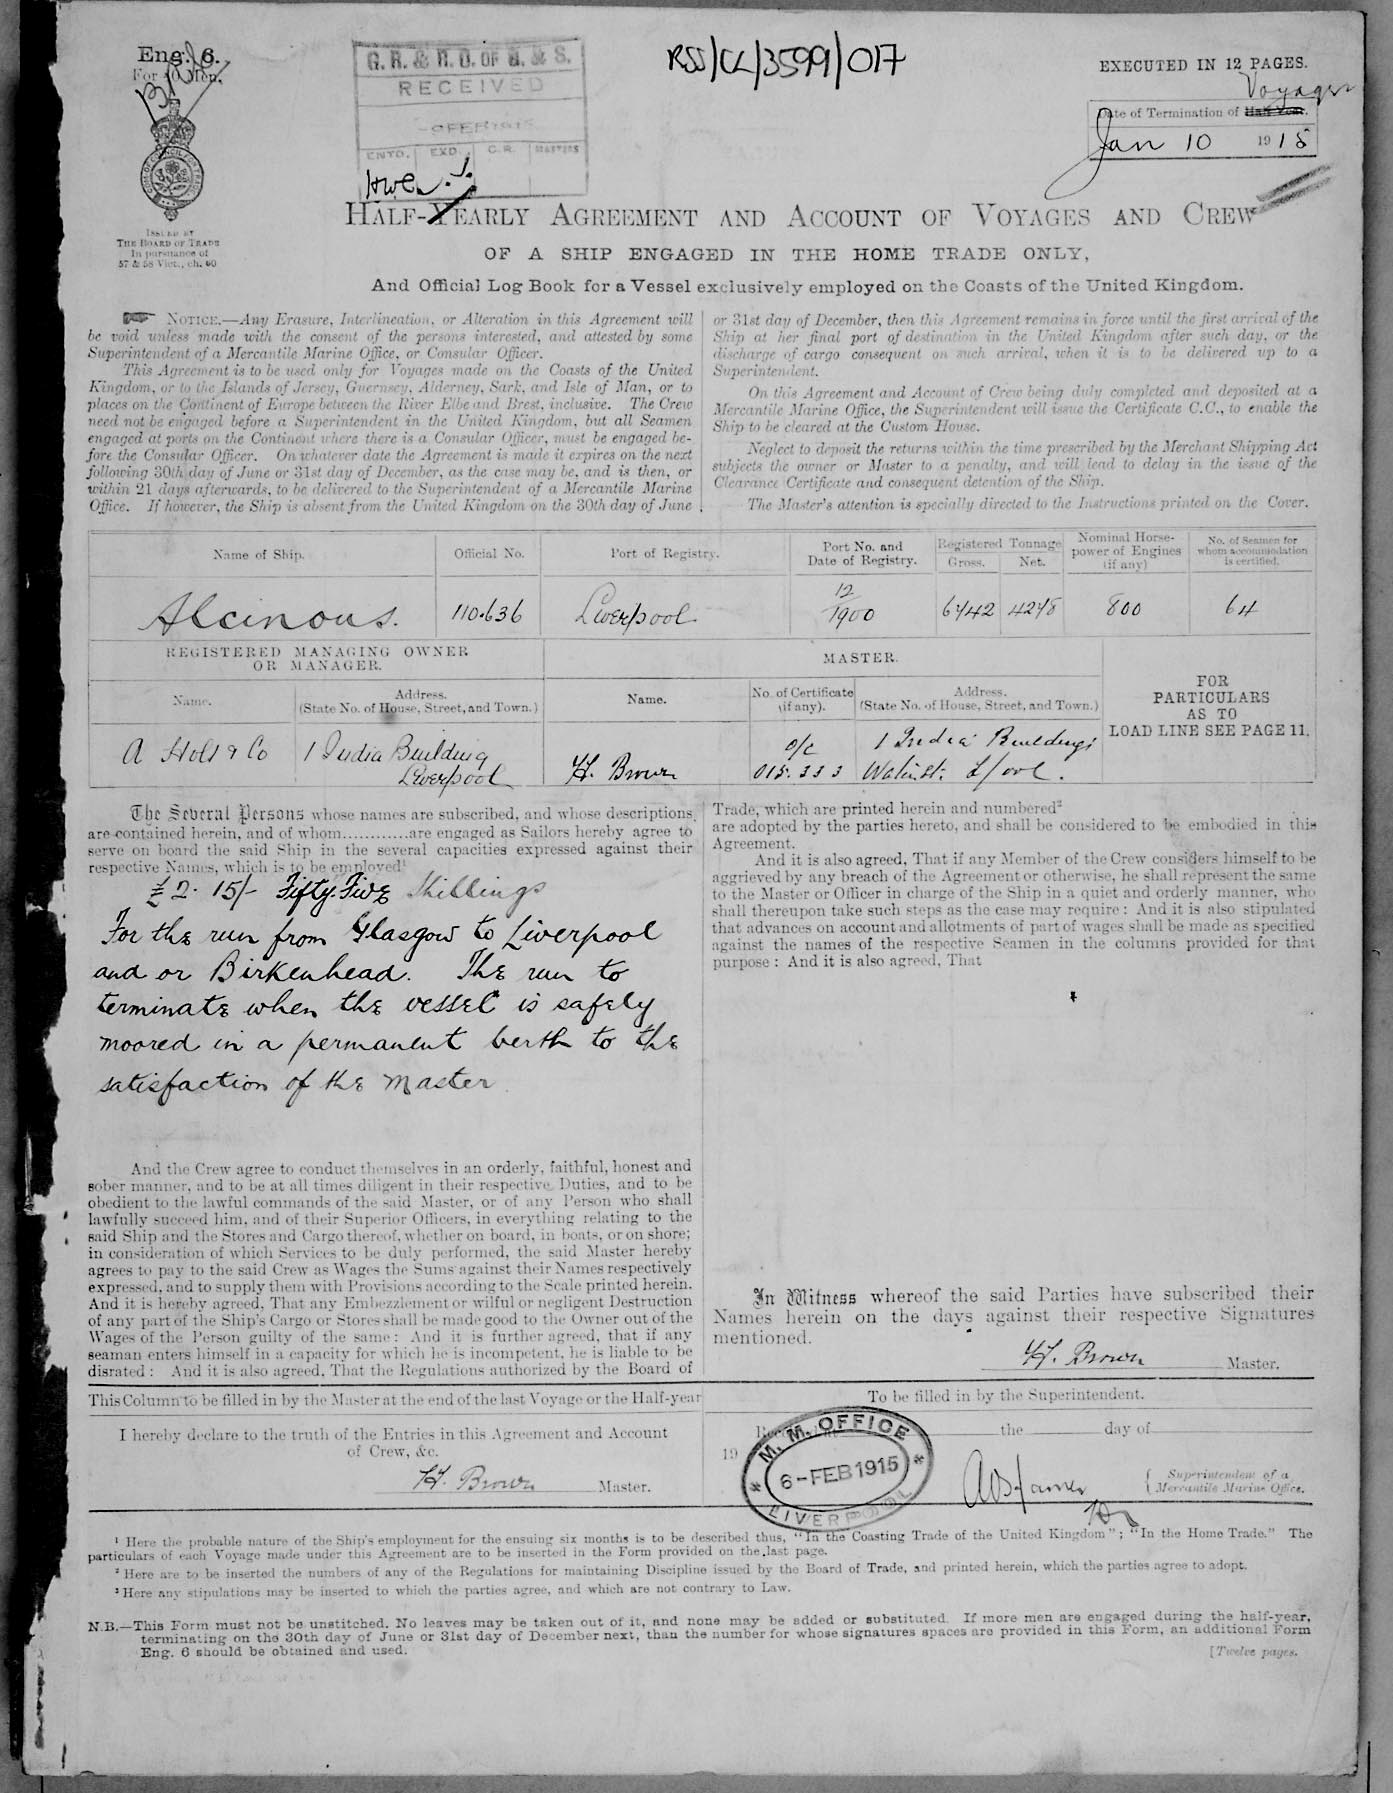 Eng. 6.
For 40 Men.
G. R. & R. O. OF S. & S.
RECEIVED
FEB 1915
ENTD. EXD. C.R. MASTERS
RSS/CL/3599/017
EXECUTED IN 12 PAGES.
Voyage
Date of Termination of Half Year.
Jan 10 1915
ISSUED BY
THE BOARD OF TRADE
In pursuance of
57 & 58 Vict., ch. 60
HALF-YEARLY AGREEMENT AND ACCOUNT OF VOYAGES AND CREW
OF A SHIP ENGAGED IN THE HOME TRADE ONLY,
And Official Log Book for a Vessel exclusively employed on the Coasts of the United Kingdom.
NOTICE.—Any Erasure, Interlineation, or Alteration in this Agreement will
be void unless made with the consent of the persons interested, and attested by some
Superintendent of a Mercantile Marine Office, or Consular Officer.
This Agreement is to be used only for Voyages made on the Coasts of the United
Kingdom, or to the Islands of Jersey, Guernsey, Alderney, Sark, and Isle of Man, or to
places on the Continent of Europe between the River Elbe and Brest, inclusive. The Crew
need not be engaged before a Superintendent in the United Kingdom, but all Seamen
engaged at ports on the Continent where there is a Consular Officer, must be engaged be-
fore the Consular Officer. On whatever date the Agreement is made it expires on the next
following 30th day of June or 31st day of December, as the case may be, and is then, or
within 21 days afterwards, to be delivered to the Superintendent of a Mercantile Marine
Office. If however, the Ship is absent from the United Kingdom on the 30th day of June
or 31st day of December, then this Agreement remains in force until the first arrival of the
Ship at her final port of destination in the United Kingdom after such day, or the
discharge of cargo consequent on such arrival, when it is to be delivered up to a
Superintendent.
On this Agreement and Account of Crew being duly completed and deposited at a
Mercantile Marine Office, the Superintendent will issue the Certificate C.C., to enable the
Ship to be cleared at the Custom House.
Neglect to deposit the returns within the time prescribed by the Merchant Shipping Act
subjects the owner or Master to a penalty, and will lead to delay in the issue of the
Clearance Certificate and consequent detention of the Ship.
The Master's attention is specially directed to the Instructions printed on the Cover.
Name of Ship. Official No. Port of Registry. Port No. and Date of Registry. Registered Tonnage Gross. Net. Nominal Horse-power of Engines (if any) No. of Seamen for whom accommodation is certified.
Alcinous. 110.636 Liverpool 12/1900 6742 4278 800 64
REGISTERED MANAGING OWNER
OR MANAGER.
MASTER.
Name. Address. (State No. of House, Street, and Town.) Name. No. of Certificate (if any). Address. (State No. of House, Street, and Town.)
FOR
PARTICULARS
AS TO
LOAD LINE SEE PAGE 11.
A Holt & Co 1 India Building Liverpool H. Brown o/c 015.333 1 India Buildings Water St. L'pool.
The Several Persons whose names are subscribed, and whose descriptions
are contained herein, and of whom............are engaged as Sailors hereby agree to
serve on board the said Ship in the several capacities expressed against their
respective Names, which is to be employed¹
£2. 15/- Fifty-Five Shillings
For the run from Glasgow to Liverpool
and or Birkenhead. The run to
terminate when the vessel is safely
moored in a permanent berth to the
satisfaction of the Master
And the Crew agree to conduct themselves in an orderly, faithful, honest and
sober manner, and to be at all times diligent in their respective Duties, and to be
obedient to the lawful commands of the said Master, or of any Person who shall
lawfully succeed him, and of their Superior Officers, in everything relating to the
said Ship and the Stores and Cargo thereof, whether on board, in boats, or on shore;
in consideration of which Services to be duly performed, the said Master hereby
agrees to pay to the said Crew as Wages the Sums against their Names respectively
expressed, and to supply them with Provisions according to the Scale printed herein.
And it is hereby agreed, That any Embezzlement or wilful or negligent Destruction
of any part of the Ship's Cargo or Stores shall be made good to the Owner out of the
Wages of the Person guilty of the same: And it is further agreed, that if any
seaman enters himself in a capacity for which he is incompetent, he is liable to be
disrated: And it is also agreed, That the Regulations authorized by the Board of
Trade, which are printed herein and numbered²
are adopted by the parties hereto, and shall be considered to be embodied in this
Agreement.
And it is also agreed, That if any Member of the Crew considers himself to be
aggrieved by any breach of the Agreement or otherwise, he shall represent the same
to the Master or Officer in charge of the Ship in a quiet and orderly manner, who
shall thereupon take such steps as the case may require: And it is also stipulated
that advances on account and allotments of part of wages shall be made as specified
against the names of the respective Seamen in the columns provided for that
purpose: And it is also agreed, That
In Witness whereof the said Parties have subscribed their
Names herein on the days against their respective Signatures
mentioned.
H. Brown Master.
This Column to be filled in by the Master at the end of the last Voyage or the Half-year
I hereby declare to the truth of the Entries in this Agreement and Account
of Crew, &c.
H. Brown Master.
To be filled in by the Superintendent.
the day of
19
M. M. OFFICE
6-FEB 1915
LIVERPOOL
Superintendent of a
Mercantile Marine Office.
¹ Here the probable nature of the Ship's employment for the ensuing six months is to be described thus, "In the Coasting Trade of the United Kingdom"; "In the Home Trade." The
particulars of each Voyage made under this Agreement are to be inserted in the Form provided on the last page.
² Here are to be inserted the numbers of any of the Regulations for maintaining Discipline issued by the Board of Trade, and printed herein, which the parties agree to adopt.
³ Here any stipulations may be inserted to which the parties agree, and which are not contrary to Law.
N.B.—This Form must not be unstitched. No leaves may be taken out of it, and none may be added or substituted. If more men are engaged during the half-year,
terminating on the 30th day of June or 31st day of December next, than the number for whose signatures spaces are provided in this Form, an additional Form
Eng. 6 should be obtained and used.
[Twelve pages.